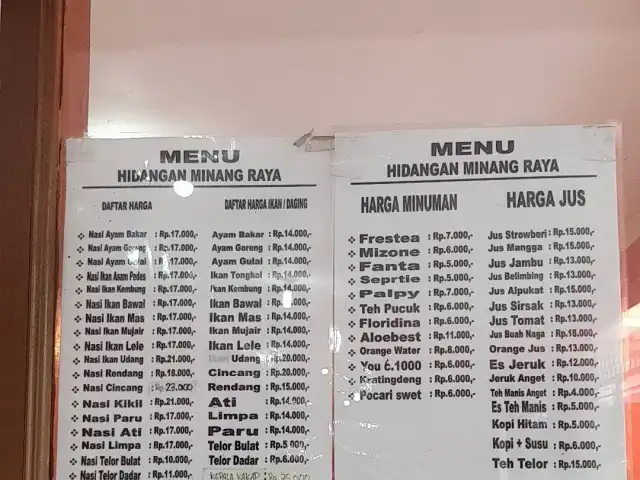 MENU
HIDANGAN MINANG RAYA
DAFTAR HARGA
Nasi Ayam Bakar : Rp.17.000,-
Nasi Ayam Goreng : Rp.17.000,-
Nasi Ayam Gulai : Rp.17.000,-
Nasi Ikan Asam Pedes : Rp.17.000,-
Nasi Ikan Kembung : Rp.17.000,-
Nasi Ikan Bawal : Rp.17.000,-
Nasi Ikan Mas : Rp.17.000,-
Nasi Ikan Mujair : Rp.17.000,-
Nasi Ikan Lele : Rp.17.000,-
Nasi Ikan Udang : Rp.21.000,-
Nasi Rendang : Rp.18.000,-
Nasi Cincang : Rp 23.000
Nasi Kikil : Rp.21.000,-
Nasi Paru : Rp.17.000,-
Nasi Ati : Rp.17.000,-
Nasi Limpa : Rp.17.000,-
Nasi Telor Bulat : Rp.10.000,-
Nasi Telor Dadar : Rp.11.000,-
DAFTAR HARGA IKAN / DAGING
Ayam Bakar : Rp.14.000,-
Ayam Goreng : Rp.14.000,-
Ayam Gulai : Rp.14.000,-
Ikan Tongkol : Rp.14.000,-
Ikan Kembung : Rp.14.000,-
Ikan Bawal : Rp.14.000,-
Ikan Mas : Rp.14.000,-
Ikan Mujair : Rp.14.000,-
Ikan Lele : Rp.14.000,-
Ikan Udang : Rp.20.000,-
Cincang : Rp.20.000,-
Rendang : Rp.15.000,-
Ati : Rp.14.000,-
Limpa : Rp.14.000,-
Paru : Rp.14.000,-
Telor Bulat : Rp.5.000,-
Telor Dadar : Rp.6.000,-
KEPALA KAKAP : Rp 35.000
MENU
HIDANGAN MINANG RAYA
HARGA MINUMAN
Frestea : Rp.7.000,-
Mizone : Rp.6.000,-
Fanta : Rp.5.000,-
Seprtie : Rp.5.000,-
Palpy : Rp.7.000,-
Teh Pucuk : Rp.6.000,-
Floridina : Rp.6.000,-
Aloebest : Rp.11.000,-
Orange Water : Rp.8.000,-
You ć.1000 : Rp.6.000,-
Kratingdeng : Rp.6.000,-
Pocari swet : Rp.6.000,-
HARGA JUS
Jus Strowberi : Rp.15.000,-
Jus Mangga : Rp.15.000,-
Jus Jambu : Rp.13.000,-
Jus Belimbing : Rp.13.000,-
Jus Alpukat : Rp.15.000,-
Jus Sirsak : Rp.13.000,-
Jus Tomat : Rp.13.000,-
Jus Buah Naga : Rp.18.000,-
Orange Jus : Rp.13.000,-
Es Jeruk : Rp.12.000,-
Jeruk Anget : Rp.10.000,-
Teh Manis Anget : Rp.4.000,-
Es Teh Manis : Rp.5.000,-
Kopi Hitam : Rp.5.000,-
Kopi + Susu : Rp.6.000,-
Teh Telor : Rp.15.000,-